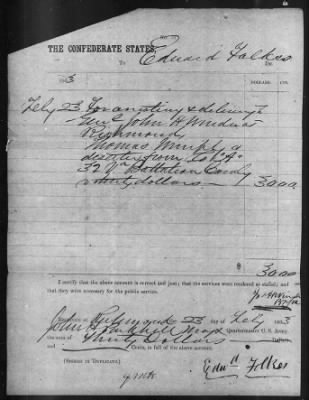 THE CONFEDERATE STATES,
To Edward Folkes Dr.
DOLLARS. CTS.
Feby 23 For arresting & delivering to
Genl John H Winder
Richmond
Thomas Murphy a
deserter from Co "A"
32 Va Battalion Cavalry
thirty dollars 30 00
30 00
I certify that the above account is correct and just; that the services were rendered as stated; and
that they were necessary for the public service.
Richmond 23 of Feby 3
John Quartermaster C. S. Army
the sum of Thirty Dollars Dollars
and Cents, in full of the above account.
(SIGNED IN DUPLICATE.)
Edwd Folkes